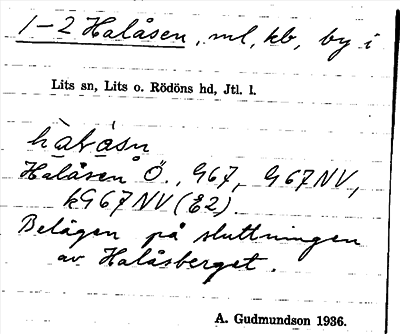 1-2 Halåsen, ml, kb, by i
Lits sn, Lits o. Rödöns hd, Jtl. l.
Halåsen Ö., G67, G67NV,
kG67NV (E2)
Belägen på sluttningen
av Halåsberget.
A. Gudmundson 1936.